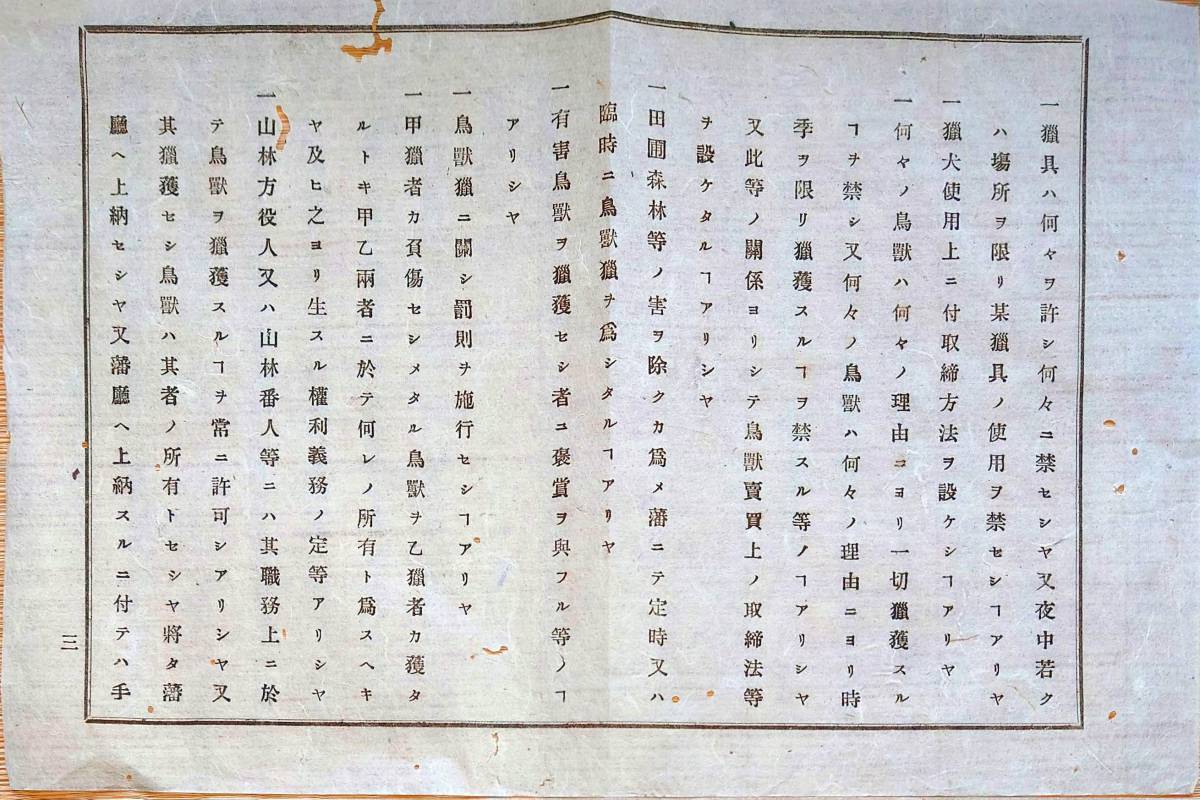 一獵具ハ何々ヲ許シ何々ニ禁セシヤ又夜中若ク
ハ塲所ヲ限リ某獵具ノ使用ヲ禁セシヿアリヤ
一獵犬使用上ニ付取締方法ヲ設ケシヿアリヤ
一何々ノ鳥獸ハ何々ノ理由ニヨリ一切獵獲スル
ヿヲ禁シ又何々ノ鳥獸ハ何々ノ理由ニヨリ時
季ヲ限リ獵獲スルヿヲ禁スル等ノヿアリシヤ
又此等ノ關係ヨリシテ鳥獸賣買上ノ取締法等
ヲ設ケタルヿアリシヤ
一田圃森林等ノ害ヲ除クカ爲メ藩ニテ定時又ハ
臨時ニ鳥獸獵ヲ爲シタルヿアリヤ
一有害鳥獸ヲ獵獲セシ者ニ褒賞ヲ與フル等ノヿ
アリシヤ
一鳥獸獵ニ關シ罰則ヲ施行セシヿアリヤ
一甲獵者カ負傷セシメタル鳥獸ヲ乙獵者カ獲タ
ルトキ甲乙兩者ニ於テ何レノ所有ト爲スヘキ
ヤ及ヒ之ヨリ生スル權利義務ノ定等アリシヤ
一山林方役人又ハ山林番人等ニハ其職務上ニ於
テ鳥獸ヲ獵獲スルヿヲ常ニ許可シアリシヤ又
其獵獲セシ鳥獸ハ其者ノ所有トセシヤ將タ藩
廳ヘ上納セシヤ又藩廳ヘ上納スルニ付テハ手
三